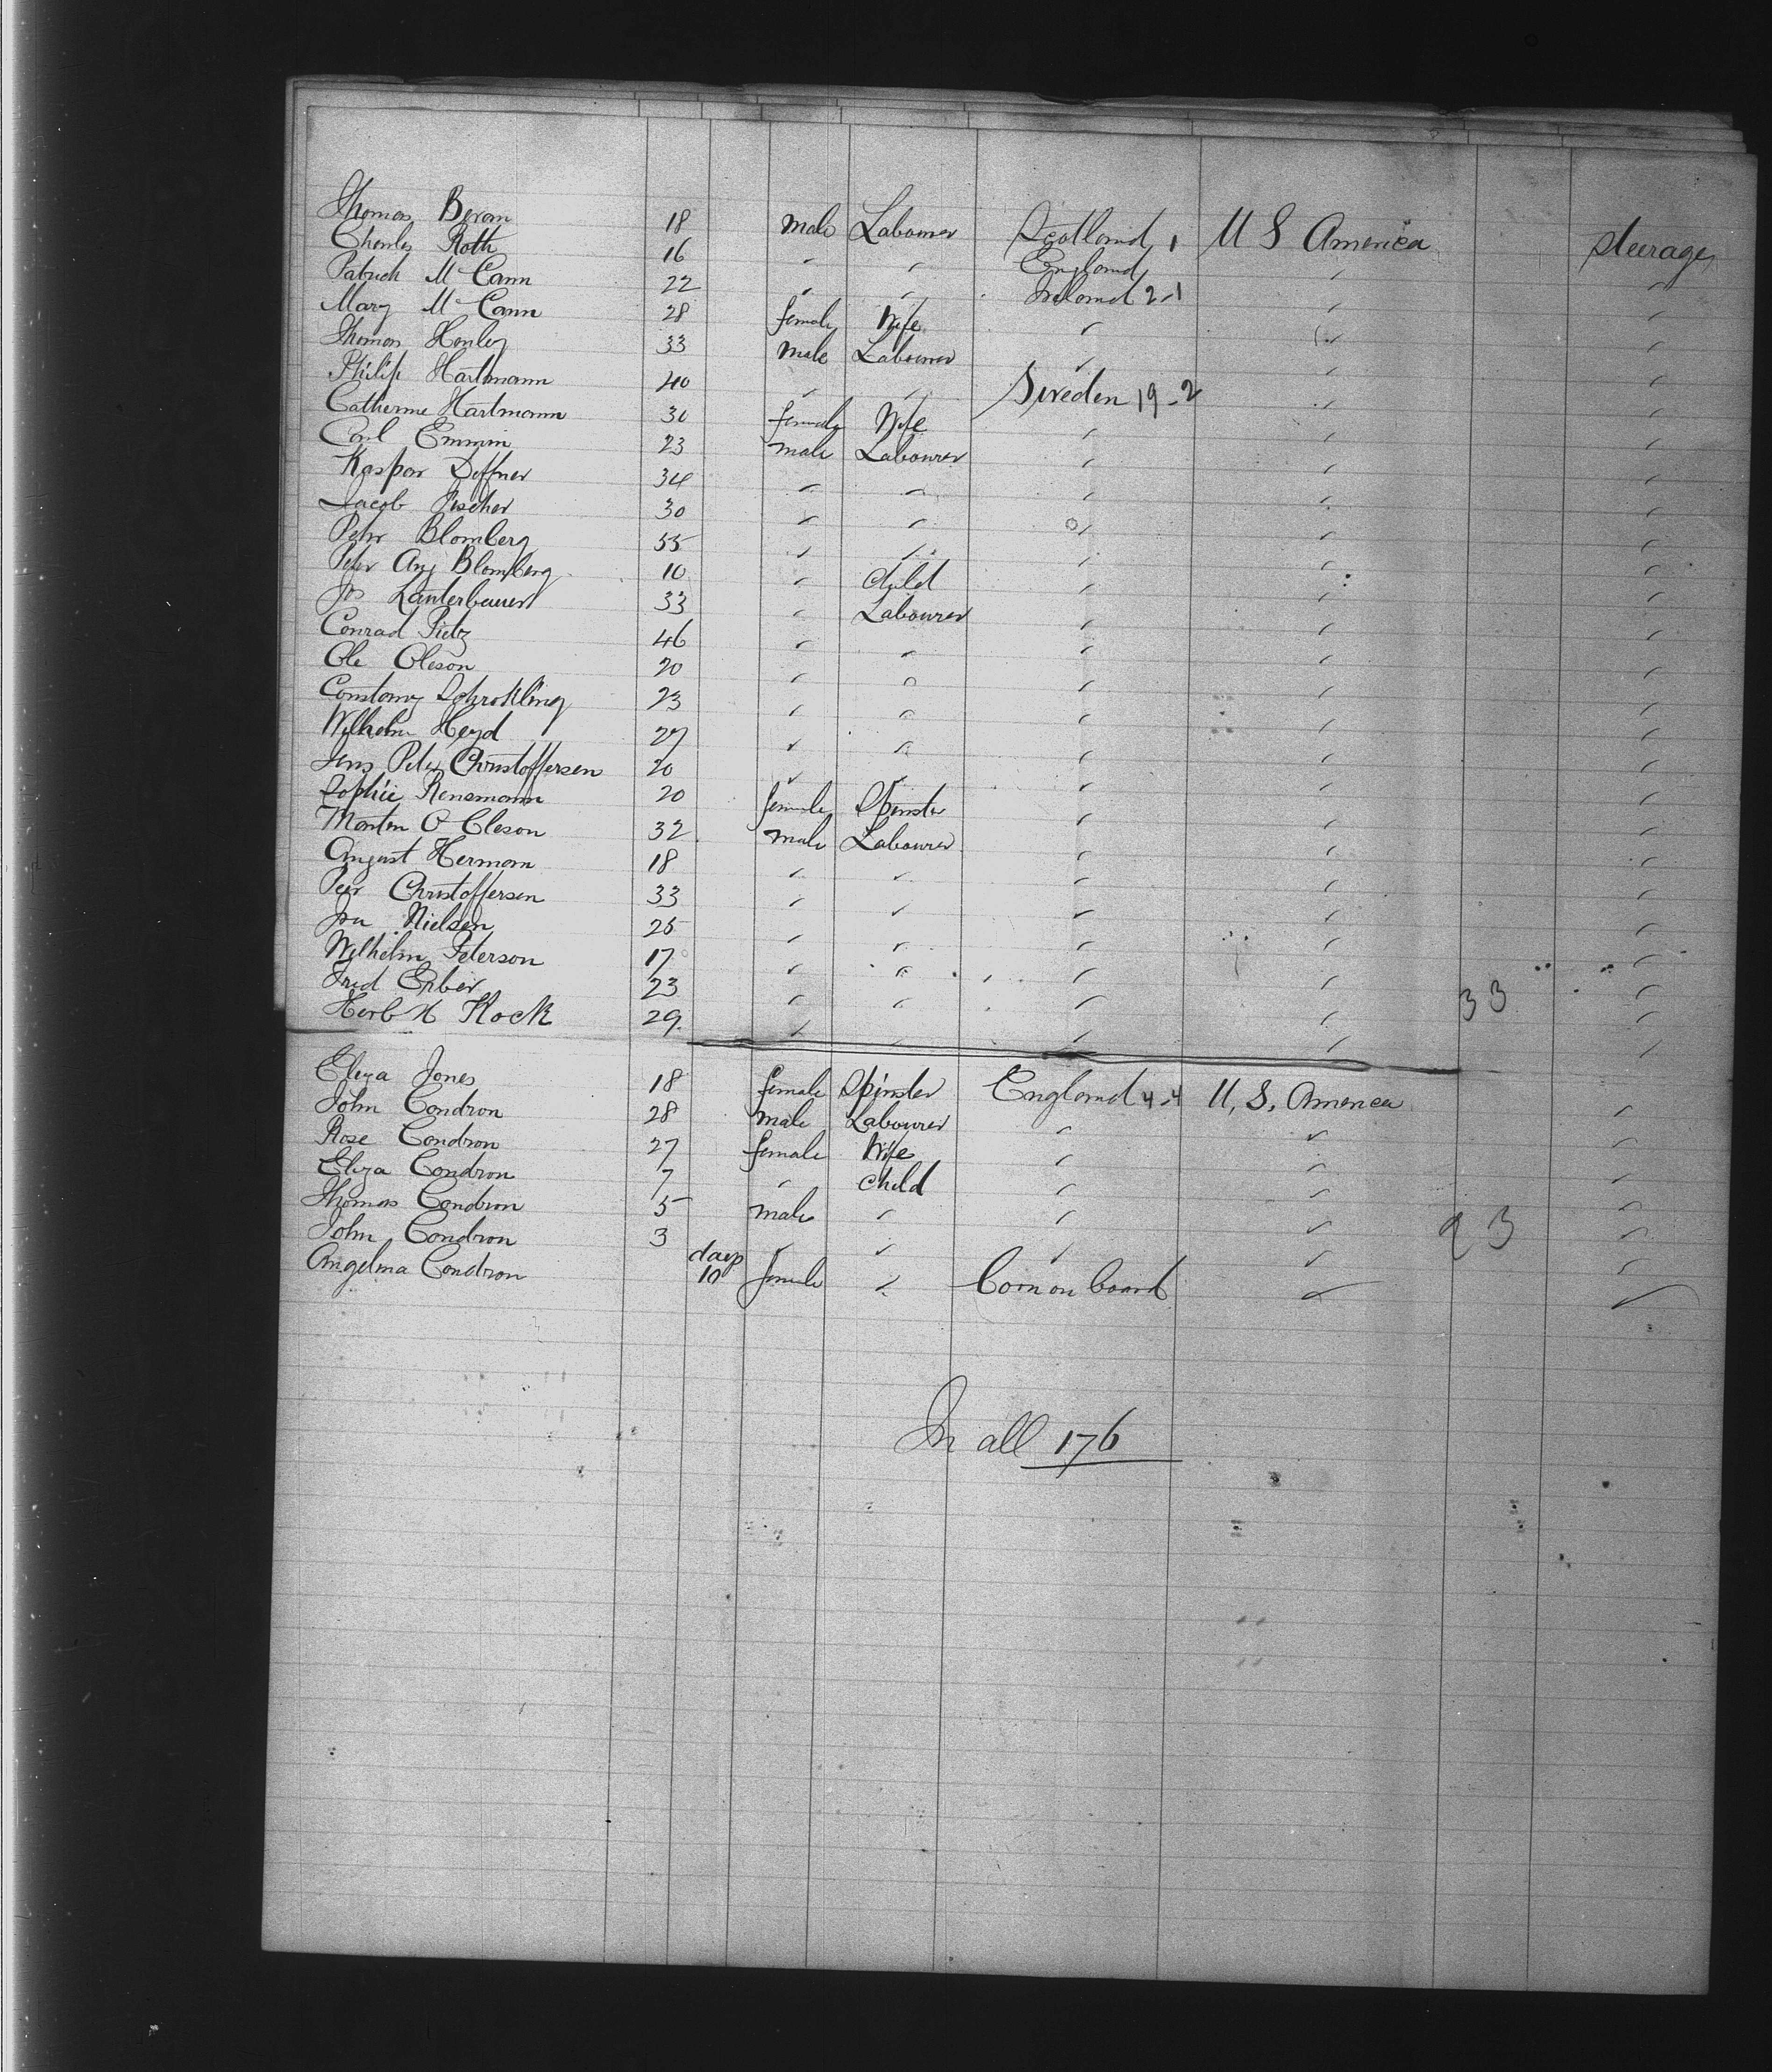 Thomas Beran 18 male Labourer Scotland 1 U S America steerage
Charley Roth 16 " " England " "
Patrick McCann 22 " " Ireland 2-1 " "
Mary McCann 28 female Wife " " "
Thomas Henley 33 male Labourer " " "
Philip Hartmann 40 " " Sweden 19-2 " "
Catherine Hartmann 30 female Wife " " "
Carl Emmin 23 male Labourer " " "
Kaspar Deffner 34 " " " " "
Jacob Fischer 30 " " " " "
Pehr Blomberg 55 " " " " "
Peter Aug Blomberg 10 " child " " "
Jos Lauterbauer 33 " Labourer " " "
Conrad 46 " " " " "
Ole Oleson 20 " " " " "
23 " " " " "
Wilhelm Heyd 27 " " " " "
Jens Peter Christoffersen 20 " " " " "
Sophie Rensmann 20 female Spinster " " "
Morten O Oleson 32 male Labourer " " "
August Herman 18 " " " " "
Peer Christoffersen 33 " " " " "
Nielsen 25 " " " " "
Wilhelm Peterson 17 " " " " "
Fred Erber 23 " " " " 33 "
Herb H Kock 29 " " " " "
Eliza Jones 18 female Spinster England 4-4 U. S. America
John Condron 28 male Labourer " " "
Rose Condron 27 female Wife " " "
Eliza Condron 7 " child " " "
Thomas Condron 5 male " " " 23 "
John Condron 3 " " " " "
Angelina Condron days 10 female " Born on board " "
In all 176